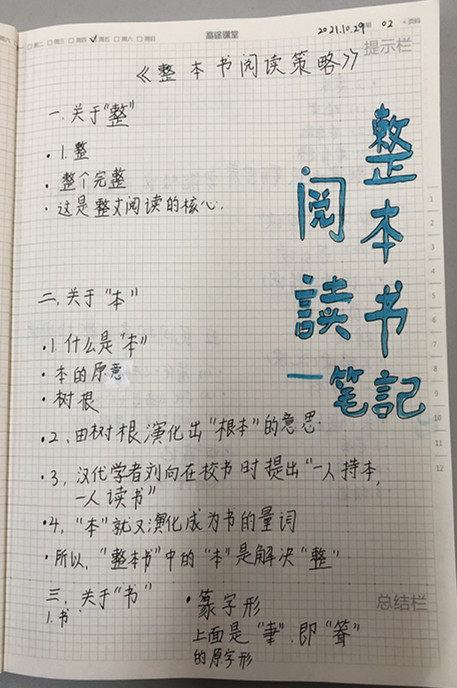 高途课堂
2021.10.29 02
提示栏
《整本书阅读策略》
一.关于"整"
·1.整
·整个完整
·这是整文阅读的核心.
整本书
阅读
一笔記
二,关于"本"
·1.什么是"本"
·本的原意
·树根
·2,由树根演化出"根本"的意思.
·3,汉代学者刘向在校书时提出"一人持本,
一人读书"
·4,"本"就又演化成为书的量词
·所以,"整本书"中的"本"是解决"整"
三,关于"书"
1.书
·篆字形
上面是"聿".即
的原字形
总结栏
1
2
3
4
5
6
7
8
9
10
11
12